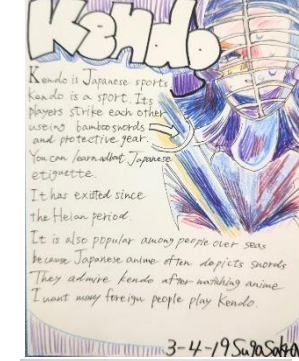 Kendo
Kendo is Japanese sports
Kendo is a sport. Its
players strike each other
useing bamboo swords
and protective gear.
You can learn about Japanese
etiquette.
It has existed since
the Heian period.
It is also popular among people over seas
because Japanese anime often depicts swords
They admire kendo after watching anime
I want many foreign people play Kendo.
3-4-19